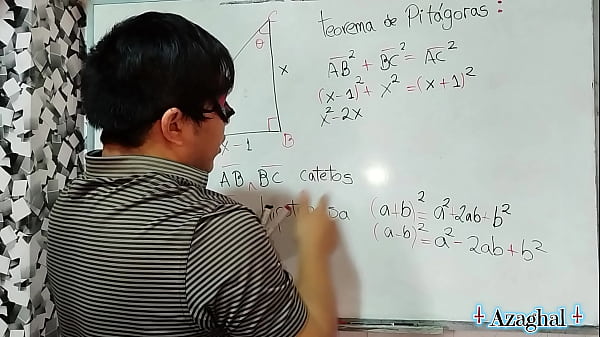 Teorema de Pitágoras:
C
θ
x
AB² + BC² = AC²
(x-1)² + x² = (x+1)²
x² - 2x
x - 1
B
AB ∧ BC catetos
(a+b)² = a² + 2ab + b²
(a-b)² = a² - 2ab + b²
Azaghal